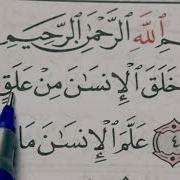 ٱللَّهِ ٱلرَّحْمَٰنِ ٱلرَّحِيمِ
خَلَقَ ٱلْإِنسَٰنَ مِنْ عَلَقٍ
٤ عَلَّمَ ٱلْإِنسَٰنَ مَا